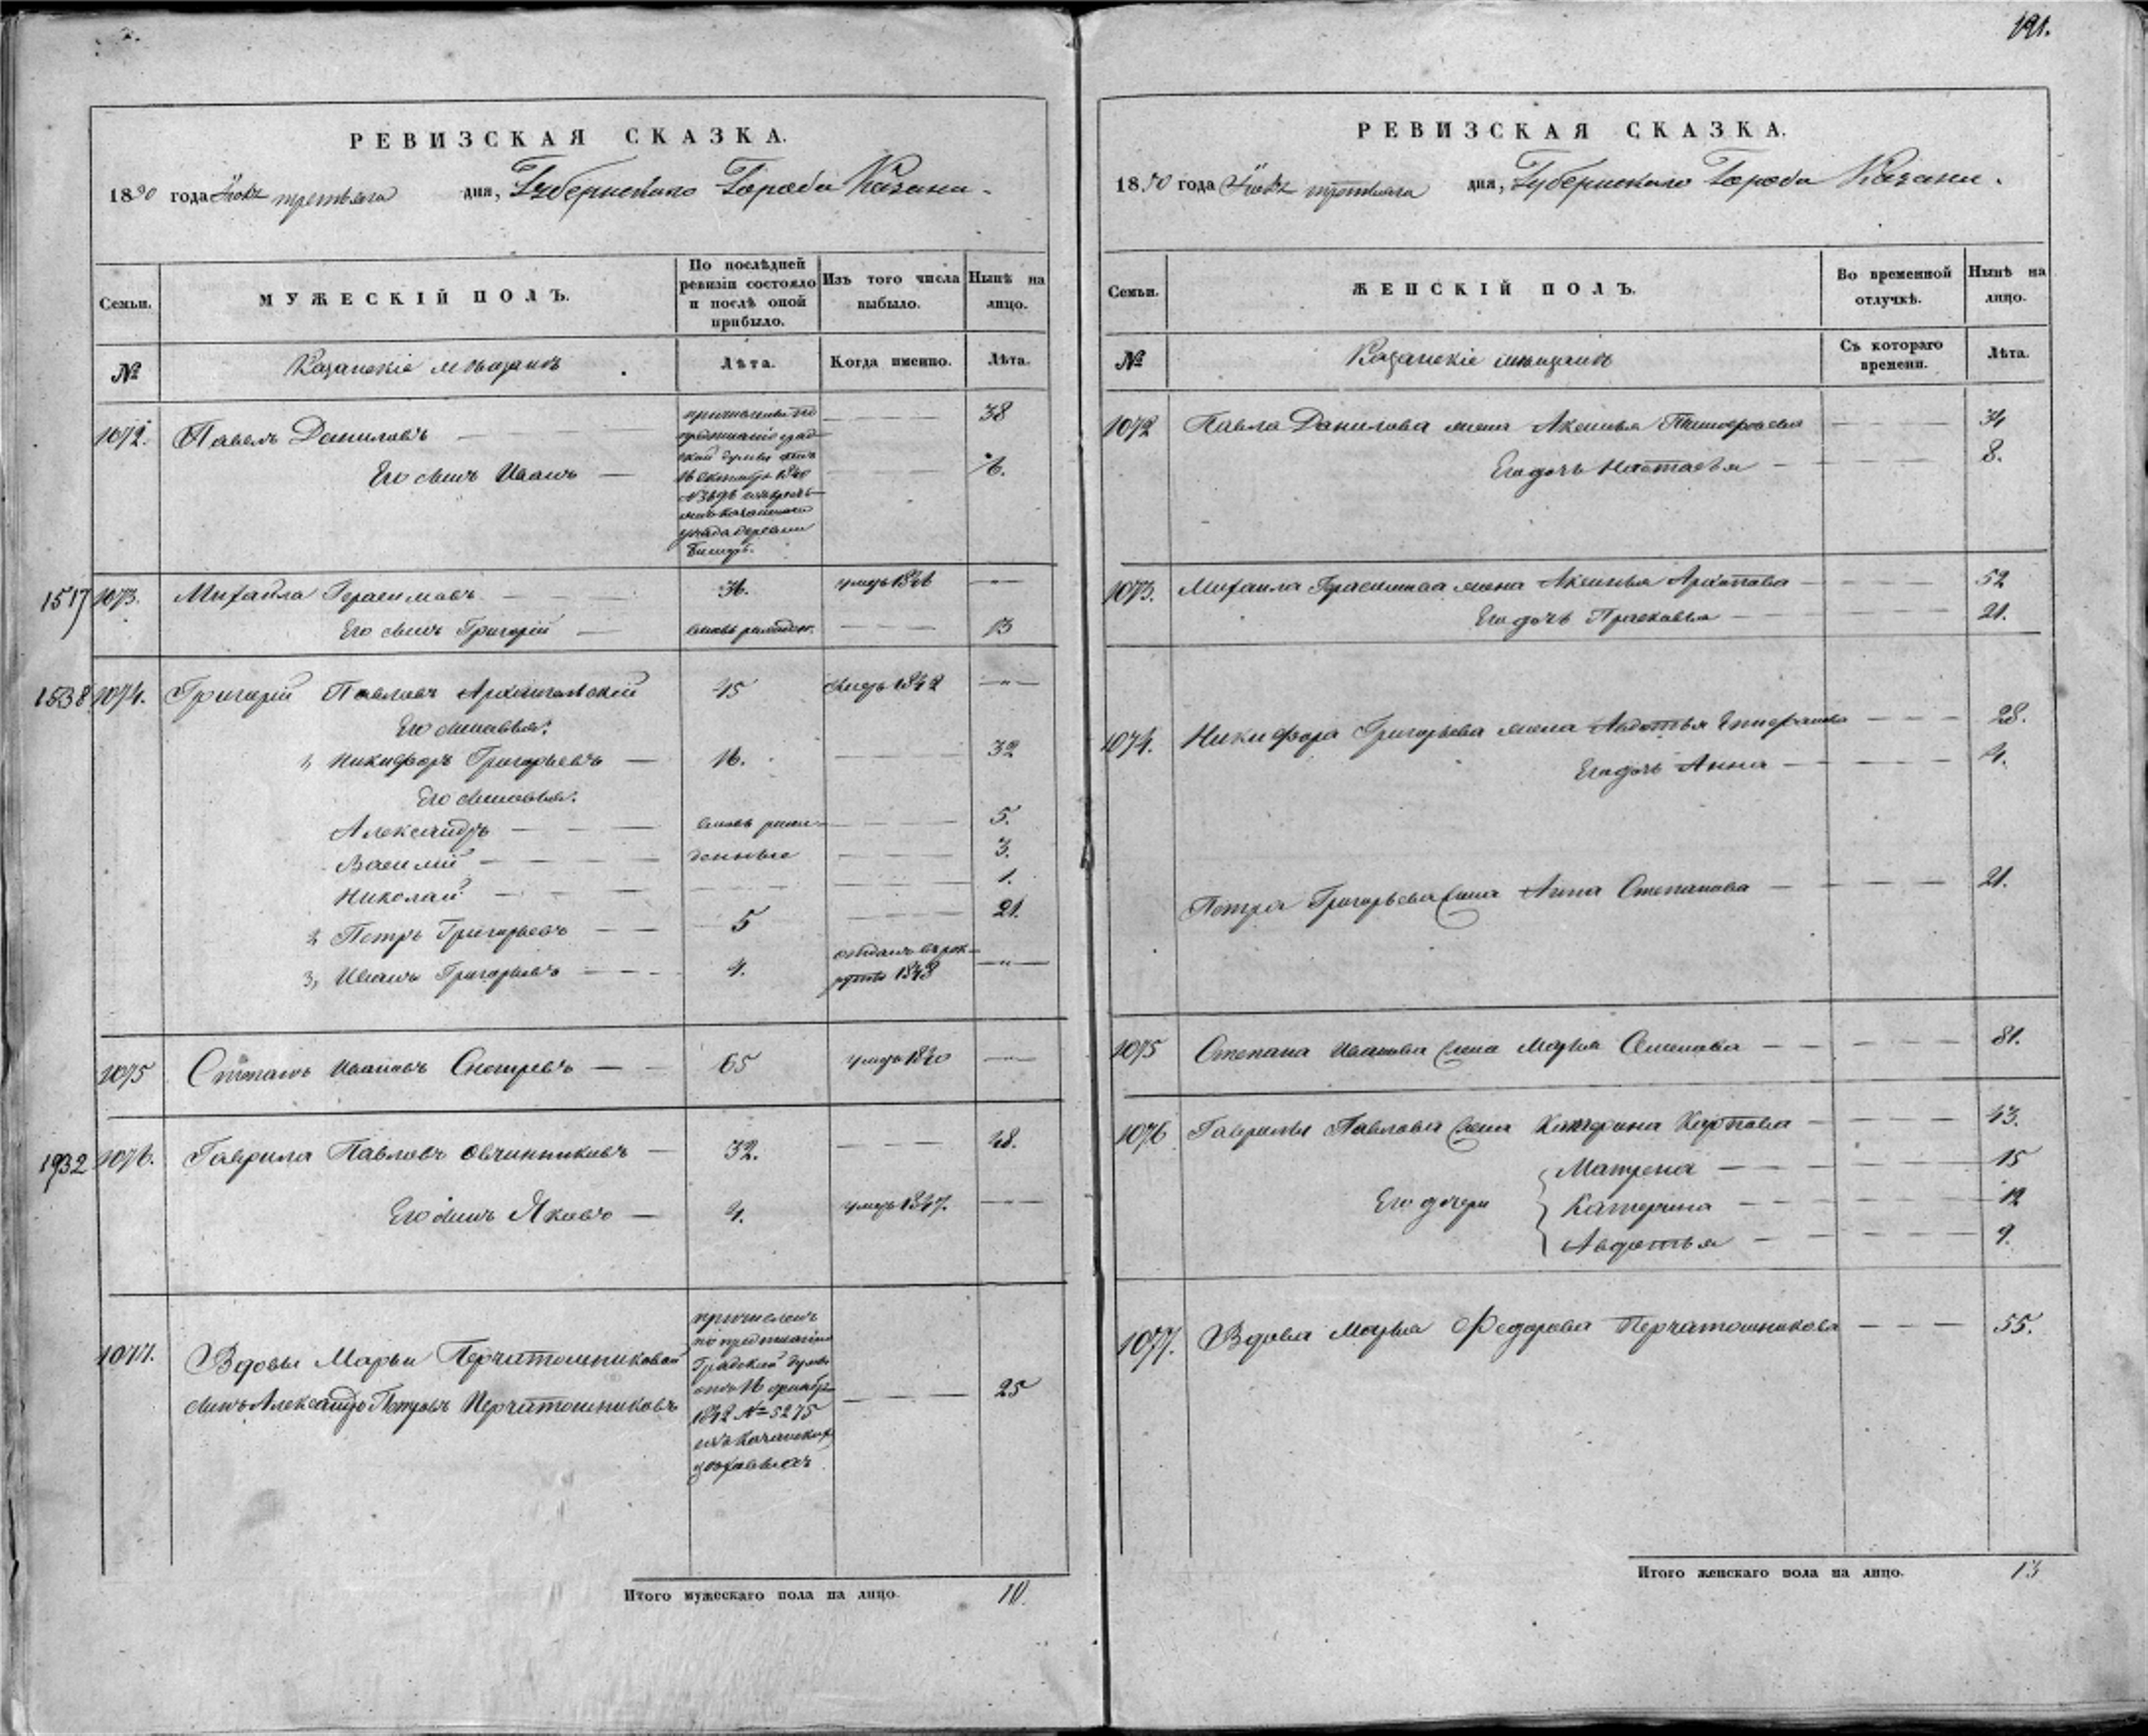 191.
РЕВИЗСКАЯ СКАЗКА.
1850 года третьяго дня, Губернскаго Города Казани.
Семьи. МУЖЕСКІЙ ПОЛЪ. По послѣдней ревизіи состояло и послѣ оной прибыло. Изъ того числа выбыло. Нынѣ на лицо.
№ Казанскіе мѣщанѣ Лѣта. Когда именно. Лѣта.
1072. Павелъ Даниловъ 38
Его сынъ Иванъ 6.
причисленъ по
предписанію град-
ской думы отъ
16 1840
№
Казанскаго
уѣзда деревни
1517 1073. Михайла Герасимовъ 36. умеръ 1846
Его сынъ Григорій вновь рожден. 13
1538 1074. Григорій Павловъ Архангельскій 45 1842
Его сыновья:
1, Никифоръ Григорьевъ 16. 32
Его сыновья:
Александръ вновь рож- 5.
Василій денные 3.
Николай 1.
2, Петръ Григорьевъ 5 21.
3, Иванъ Григорьевъ 4. отданъ въ рек-
руты 1848
1075 Степанъ Ивановъ Снегиревъ 65 умеръ 1840
1932 1076. Гаврила Павловъ Овчинниковъ 32. 48.
Его сынъ Яковъ 4. умеръ 1847.
1077. Вдовы Марьи Перчатошниковой
сынъ Александръ Петровъ Перчатошниковъ 25
причисленъ
по предписанію
Градской думы
отъ 16
1842 № 5275
изъ Казанскихъ
цеховыхъ
Итого мужескаго пола на лицо. 10.
РЕВИЗСКАЯ СКАЗКА.
1850 года третьяго дня, Губернскаго Города Казани.
Семьи. ЖЕНСКІЙ ПОЛЪ. Во временной отлучкѣ. Нынѣ на лицо.
№ Казанскіе мѣщанѣ Съ котораго времени. Лѣта.
1072 Павла Данилова жена Аксинья 34
Его дочь Настасья 8.
1073. Михаила Герасимова жена Аксинья Архипова 52
Его дочь Прасковья 21.
1074. Никифора Григорьева жена Авдотья 28.
Его дочь Анна 4.
Петра Григорьева жена Анна Степанова 21.
1075 Степана Иванова жена Марья Семенова 81.
1076 Гаврилы Павлова жена Катерина Карпова 43.
Матрена 15
Его дочери Катерина 12
Авдотья 9.
1077. Вдова Марья Федорова Перчатошникова 55.
Итого женскаго пола на лицо. 13